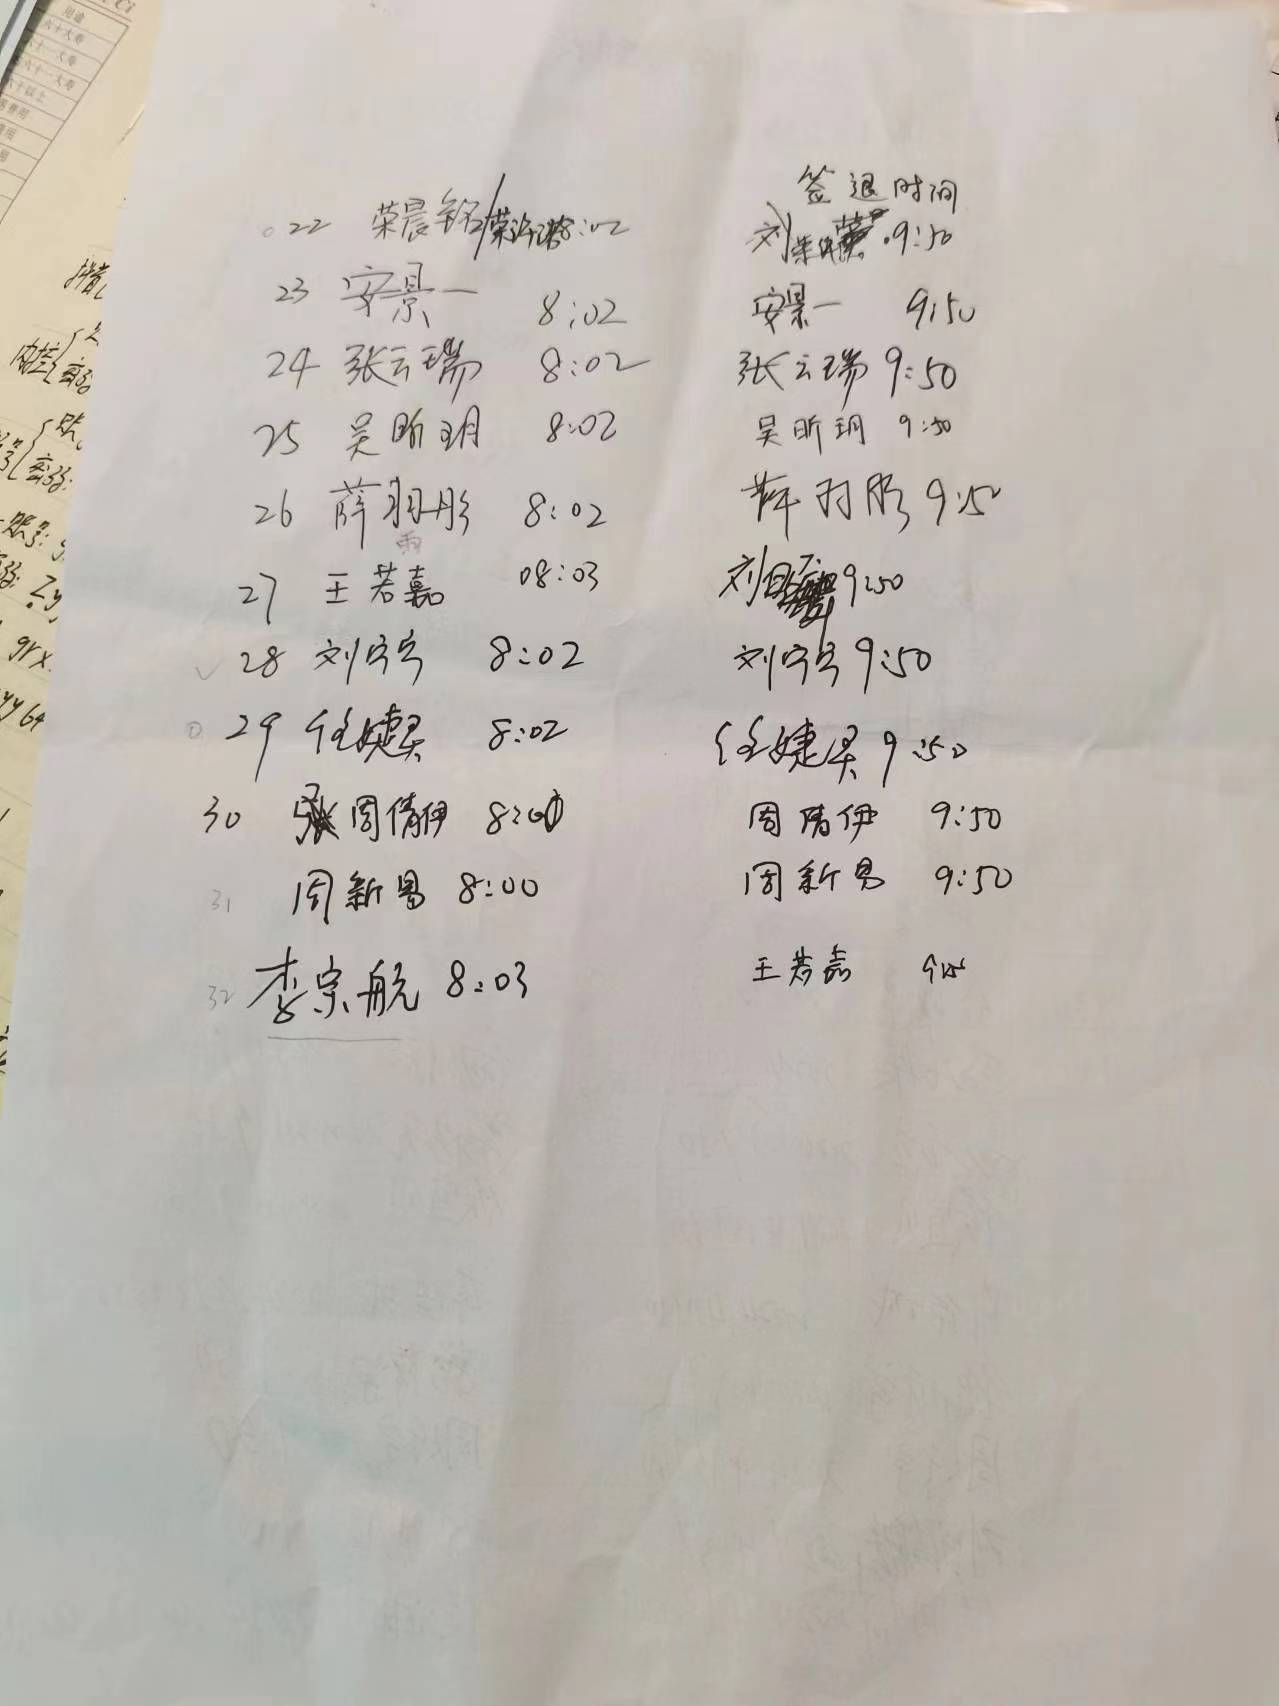 签退时间
22 荣晨铭/荣 8:02 刘 9:50
23 安景一 8:02 安景一 9:50
24 张云瑞 8:02 张云瑞 9:50
25 吴昕玥 8:02 吴昕玥 9:50
26 薛羽彤 8:02 薛羽彤 9:50
雨
27 王若嘉 08:03 刘 9:50
28 刘宇宁 8:02 刘宇宁 9:50
29 任婕 8:02 任婕 9:50
30 周倩伊 8:00 周倩伊 9:50
31 周新易 8:00 周新易 9:50
32 李宗航 8:03 王若嘉
用途
六十大寿
六十一大寿
六十以上
抖音
内控
密码
账号:
grx
yy64